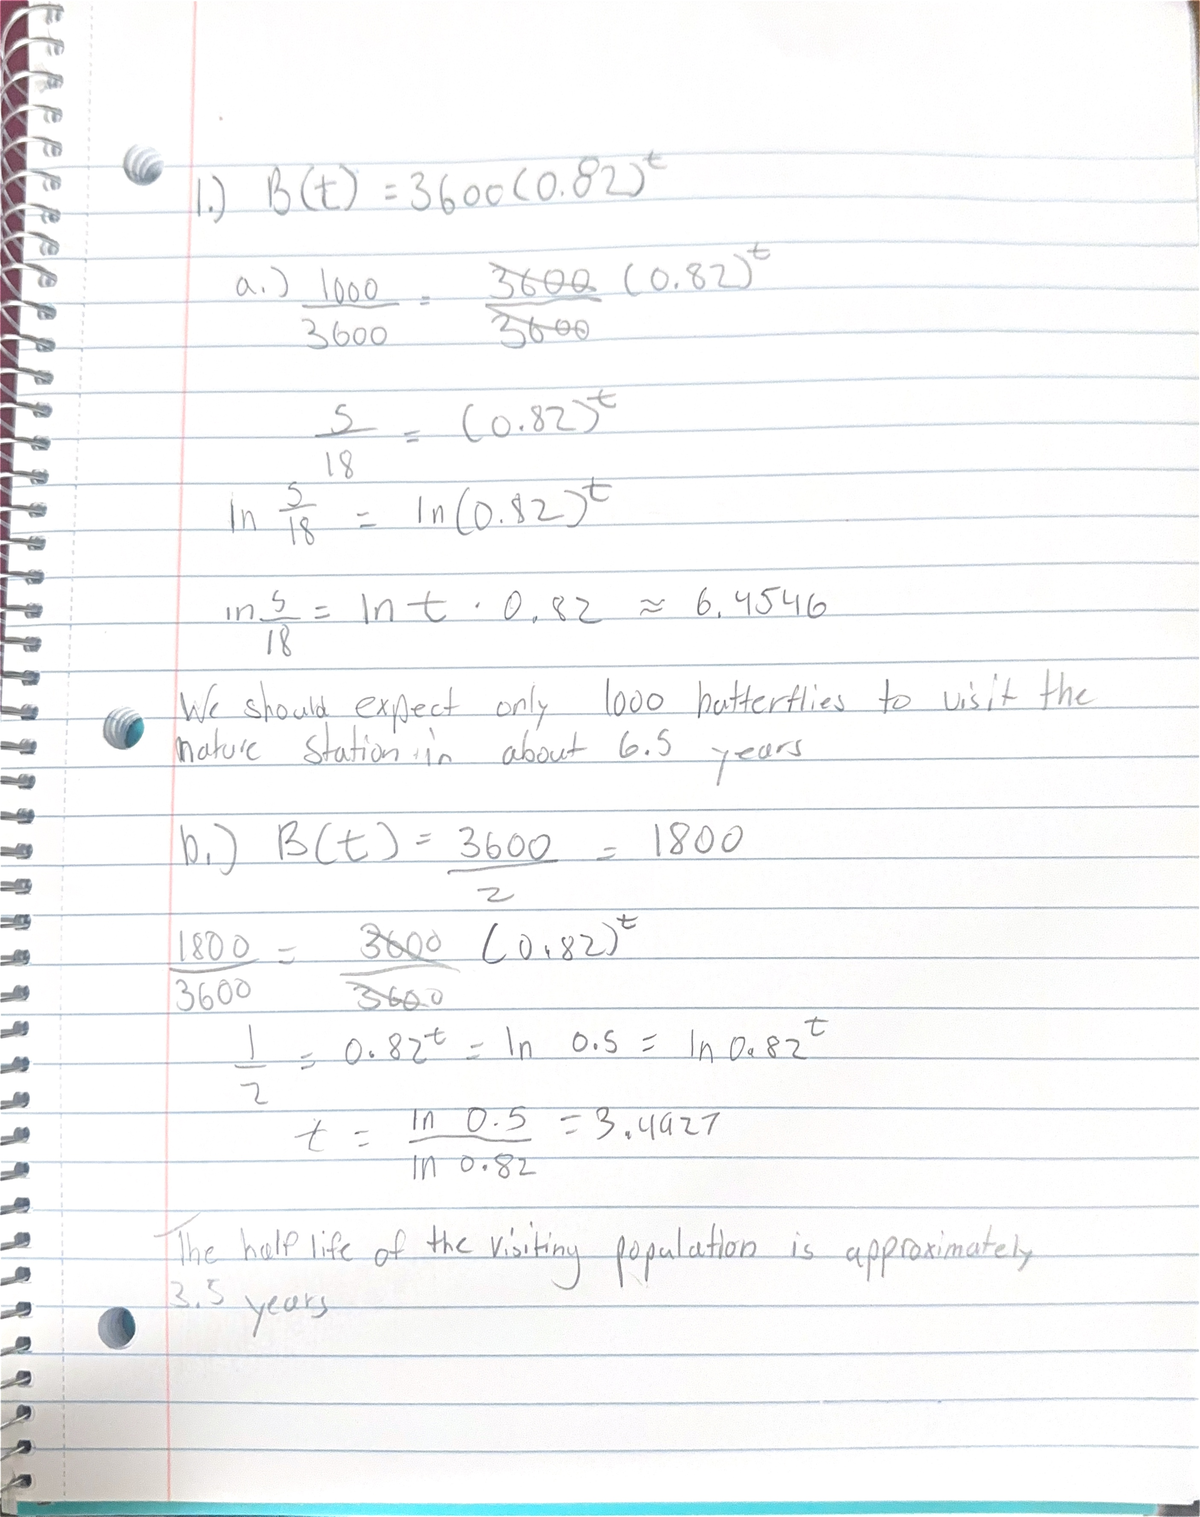 1.) B(t) = 3600(0.82)^t
a.) 1000/3600 = 3600/3600 (0.82)^t
5/18 = (0.82)^t
ln 5/18 = ln(0.82)^t
ln 5/18 = ln t · 0.82 ≈ 6.4546
We should expect only 1000 butterflies to visit the
nature station in about 6.5 years
b.) B(t) = 3600/2 = 1800
1800/3600 = 3600/3600 (0.82)^t
1/2 = 0.82^t = ln 0.5 = ln 0.82^t
t = ln 0.5/ln 0.82 = 3.4927
The half life of the visiting population is approximately
3.5 years